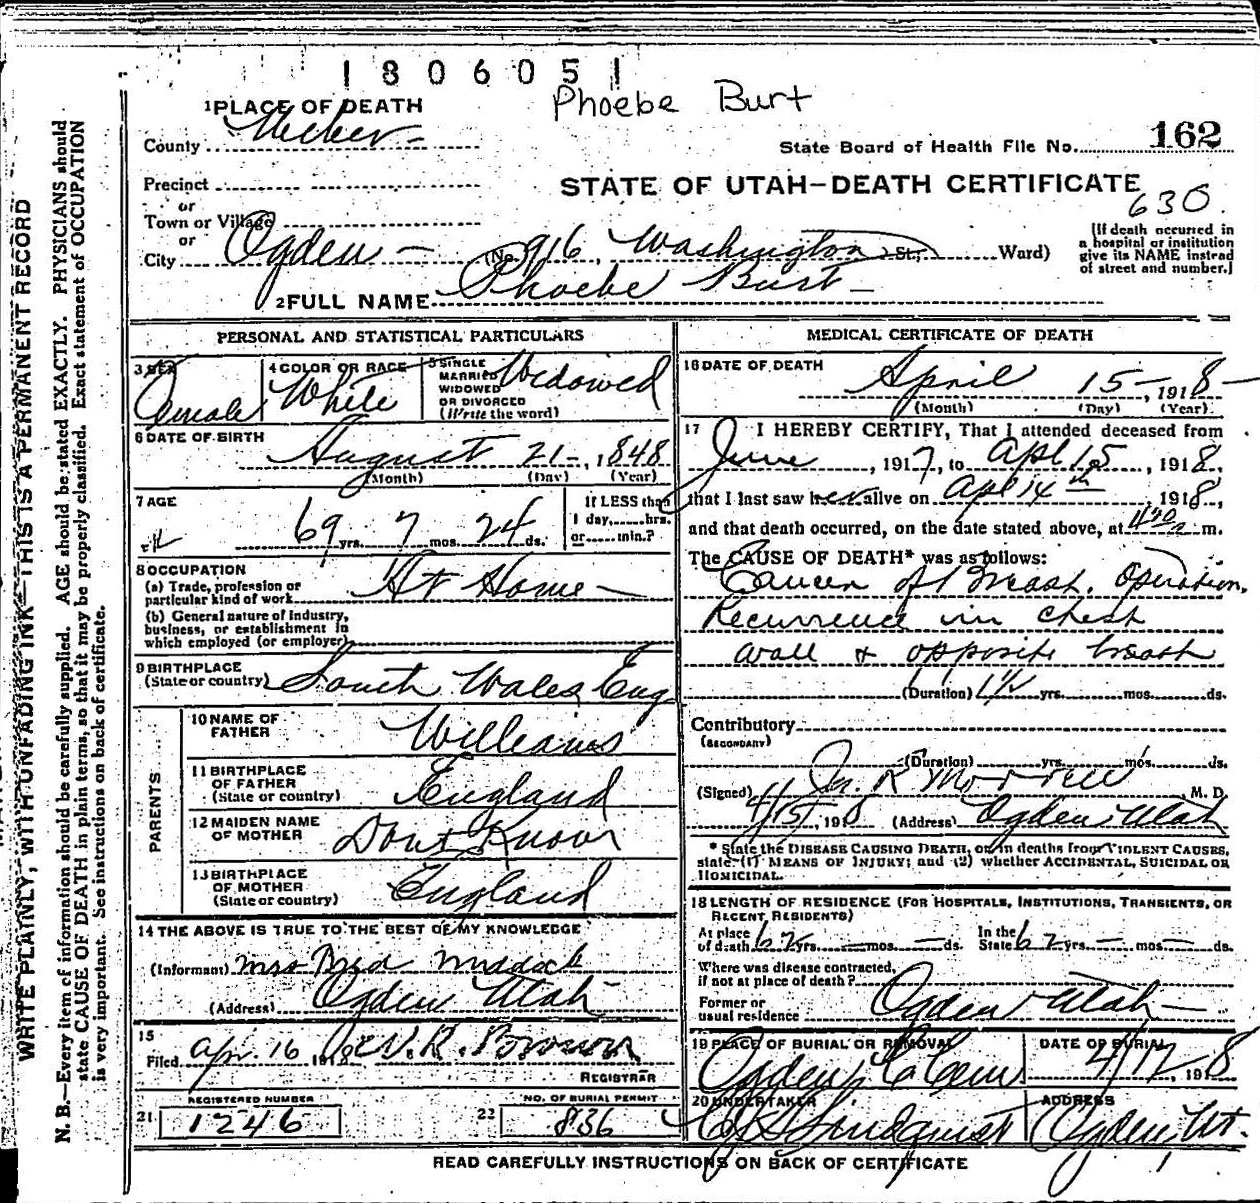 1806051
Phoebe Burt
1 PLACE OF DEATH
County Weber
State Board of Health File No. 162
Precinct
STATE OF UTAH—DEATH CERTIFICATE
630
or
Town or Village
or
City Ogden (No. 916, Washington St.; Ward)
[If death occurred in a hospital or institution give its NAME instead of street and number.]
2 FULL NAME Phoebe Burt
PERSONAL AND STATISTICAL PARTICULARS
3 SEX Female
4 COLOR OR RACE White
5 SINGLE MARRIED WIDOWED OR DIVORCED (Write the word) Widowed
6 DATE OF BIRTH August 21, 1848
(Month) (Day) (Year)
7 AGE 69 yrs. 7 mos. 24 ds.
If LESS than 1 day, hrs. or min.?
8 OCCUPATION
(a) Trade, profession or particular kind of work At Home
(b) General nature of industry, business, or establishment in which employed (or employer)
9 BIRTHPLACE (State or country) South Wales, Eng
PARENTS
10 NAME OF FATHER Williams
11 BIRTHPLACE OF FATHER (State or country) England
12 MAIDEN NAME OF MOTHER Dont Know
13 BIRTHPLACE OF MOTHER (State or country) England
14 THE ABOVE IS TRUE TO THE BEST OF MY KNOWLEDGE
(Informant) Mrs
(Address) Ogden Utah
15
Filed Apr. 16 1918
REGISTRAR
21 REGISTERED NUMBER 1246
22 NO. OF BURIAL PERMIT 836
MEDICAL CERTIFICATE OF DEATH
16 DATE OF DEATH April 15, 1918
(Month) (Day) (Year)
17 I HEREBY CERTIFY, That I attended deceased from
June, 1917, to Apl 15, 1918,
that I last saw her alive on Apl 14th, 1918,
and that death occurred, on the date stated above, at m.
The CAUSE OF DEATH* was as follows:
Cancer of Breast. Operation,
Recurrence in chest
wall & opposite breast
(Duration) 1½ yrs. mos. ds.
Contributory
(SECONDARY)
(Duration) yrs. mos. ds.
(Signed) Morrell M. D.
4/15, 1918 (Address) Ogden Utah
* State the DISEASE CAUSING DEATH, or in deaths from VIOLENT CAUSES, state (1) MEANS OF INJURY; and (2) whether ACCIDENTAL, SUICIDAL OR HOMICIDAL.
18 LENGTH OF RESIDENCE (FOR HOSPITALS, INSTITUTIONS, TRANSIENTS, OR RECENT RESIDENTS)
At place of death 62 yrs. mos. ds. In the State 62 yrs. mos. ds.
Where was disease contracted, if not at place of death?
Former or usual residence Ogden Utah
19 PLACE OF BURIAL OR REMOVAL Ogden C Cem
DATE OF BURIAL 4/17, 1918
20 UNDERTAKER Lindquist
ADDRESS Ogden, Ut.
READ CAREFULLY INSTRUCTIONS ON BACK OF CERTIFICATE
WRITE PLAINLY, WITH UNFADING INK—THIS IS A PERMANENT RECORD
N. B.—Every item of information should be carefully supplied. AGE should be stated EXACTLY. PHYSICIANS should
state CAUSE OF DEATH in plain terms, so that it may be properly classified. Exact statement of OCCUPATION
is very important. See instructions on back of certificate.